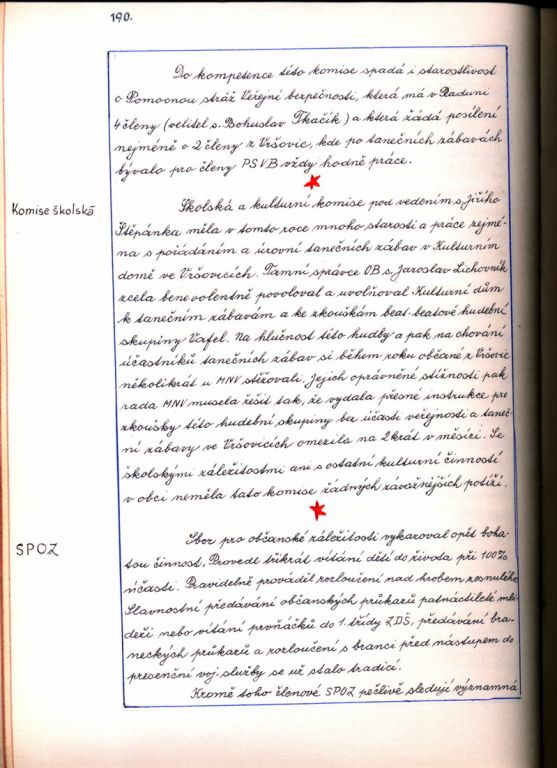 190.
Do kompetence této komise spadá i starostlivost
o Pomocnou stráž Veřejné bezpečnosti, která má v Raduni
4 členy (velitel s. Bohuslav Tkačík) a která žádá posílení
nejméně o 2 členy z Vršovic, kde po tanečních zábavách
bývalo pro členy PSVB vždy hodně práce.
Komise školská
Školská a kulturní komise pod vedením s. Jiřího
Štěpánka měla v tomto roce mnoho starosti a práce zejmé-
na s pořádáním a úrovní tanečních zábav v Kulturním
domě ve Vršovicích. Tamní správce OB s. Jaroslav Lichovník
zcela benevolentně povoloval a uvolňoval Kulturní dům
k tanečním zábavám a ke zkouškám beat-beatové hudební
skupiny Vafel. Na hlučnost této hudby a pak na chování
účastníků tanečních zábav si během roku občané z Vršovic
několikrát u MNV stěžovali. Jejich oprávněné stížnosti pak
rada MNV musela řešit tak, že vydala přesné instrukce pro
zkoušky této hudební skupiny bez účasti veřejnosti a taneč-
ní zábavy ve Vršovicích omezila na 2krát v měsíci. Se
školskými záležitostmi ani s ostatní kulturní činností
v obci neměla tato komise žádných závažnějších potíží.
SPOZ
Sbor pro občanské záležitosti vykazoval opět boha-
tou činnost. Provedl třikrát vítání dětí do života při 100%
účasti. Pravidelně provádil rozloučení nad hrobem zesnulého.
Slavnostní předávání občanských průkazů patnáctileté mlá-
deži nebo vítání prvňáčků do 1. třídy ZDŠ, předávání bra-
neckých průkazů a rozloučení s branci před nástupem do
presenční voj. služby se už stalo tradicí.
Kromě toho členové SPOZ pečlivě sledují významná